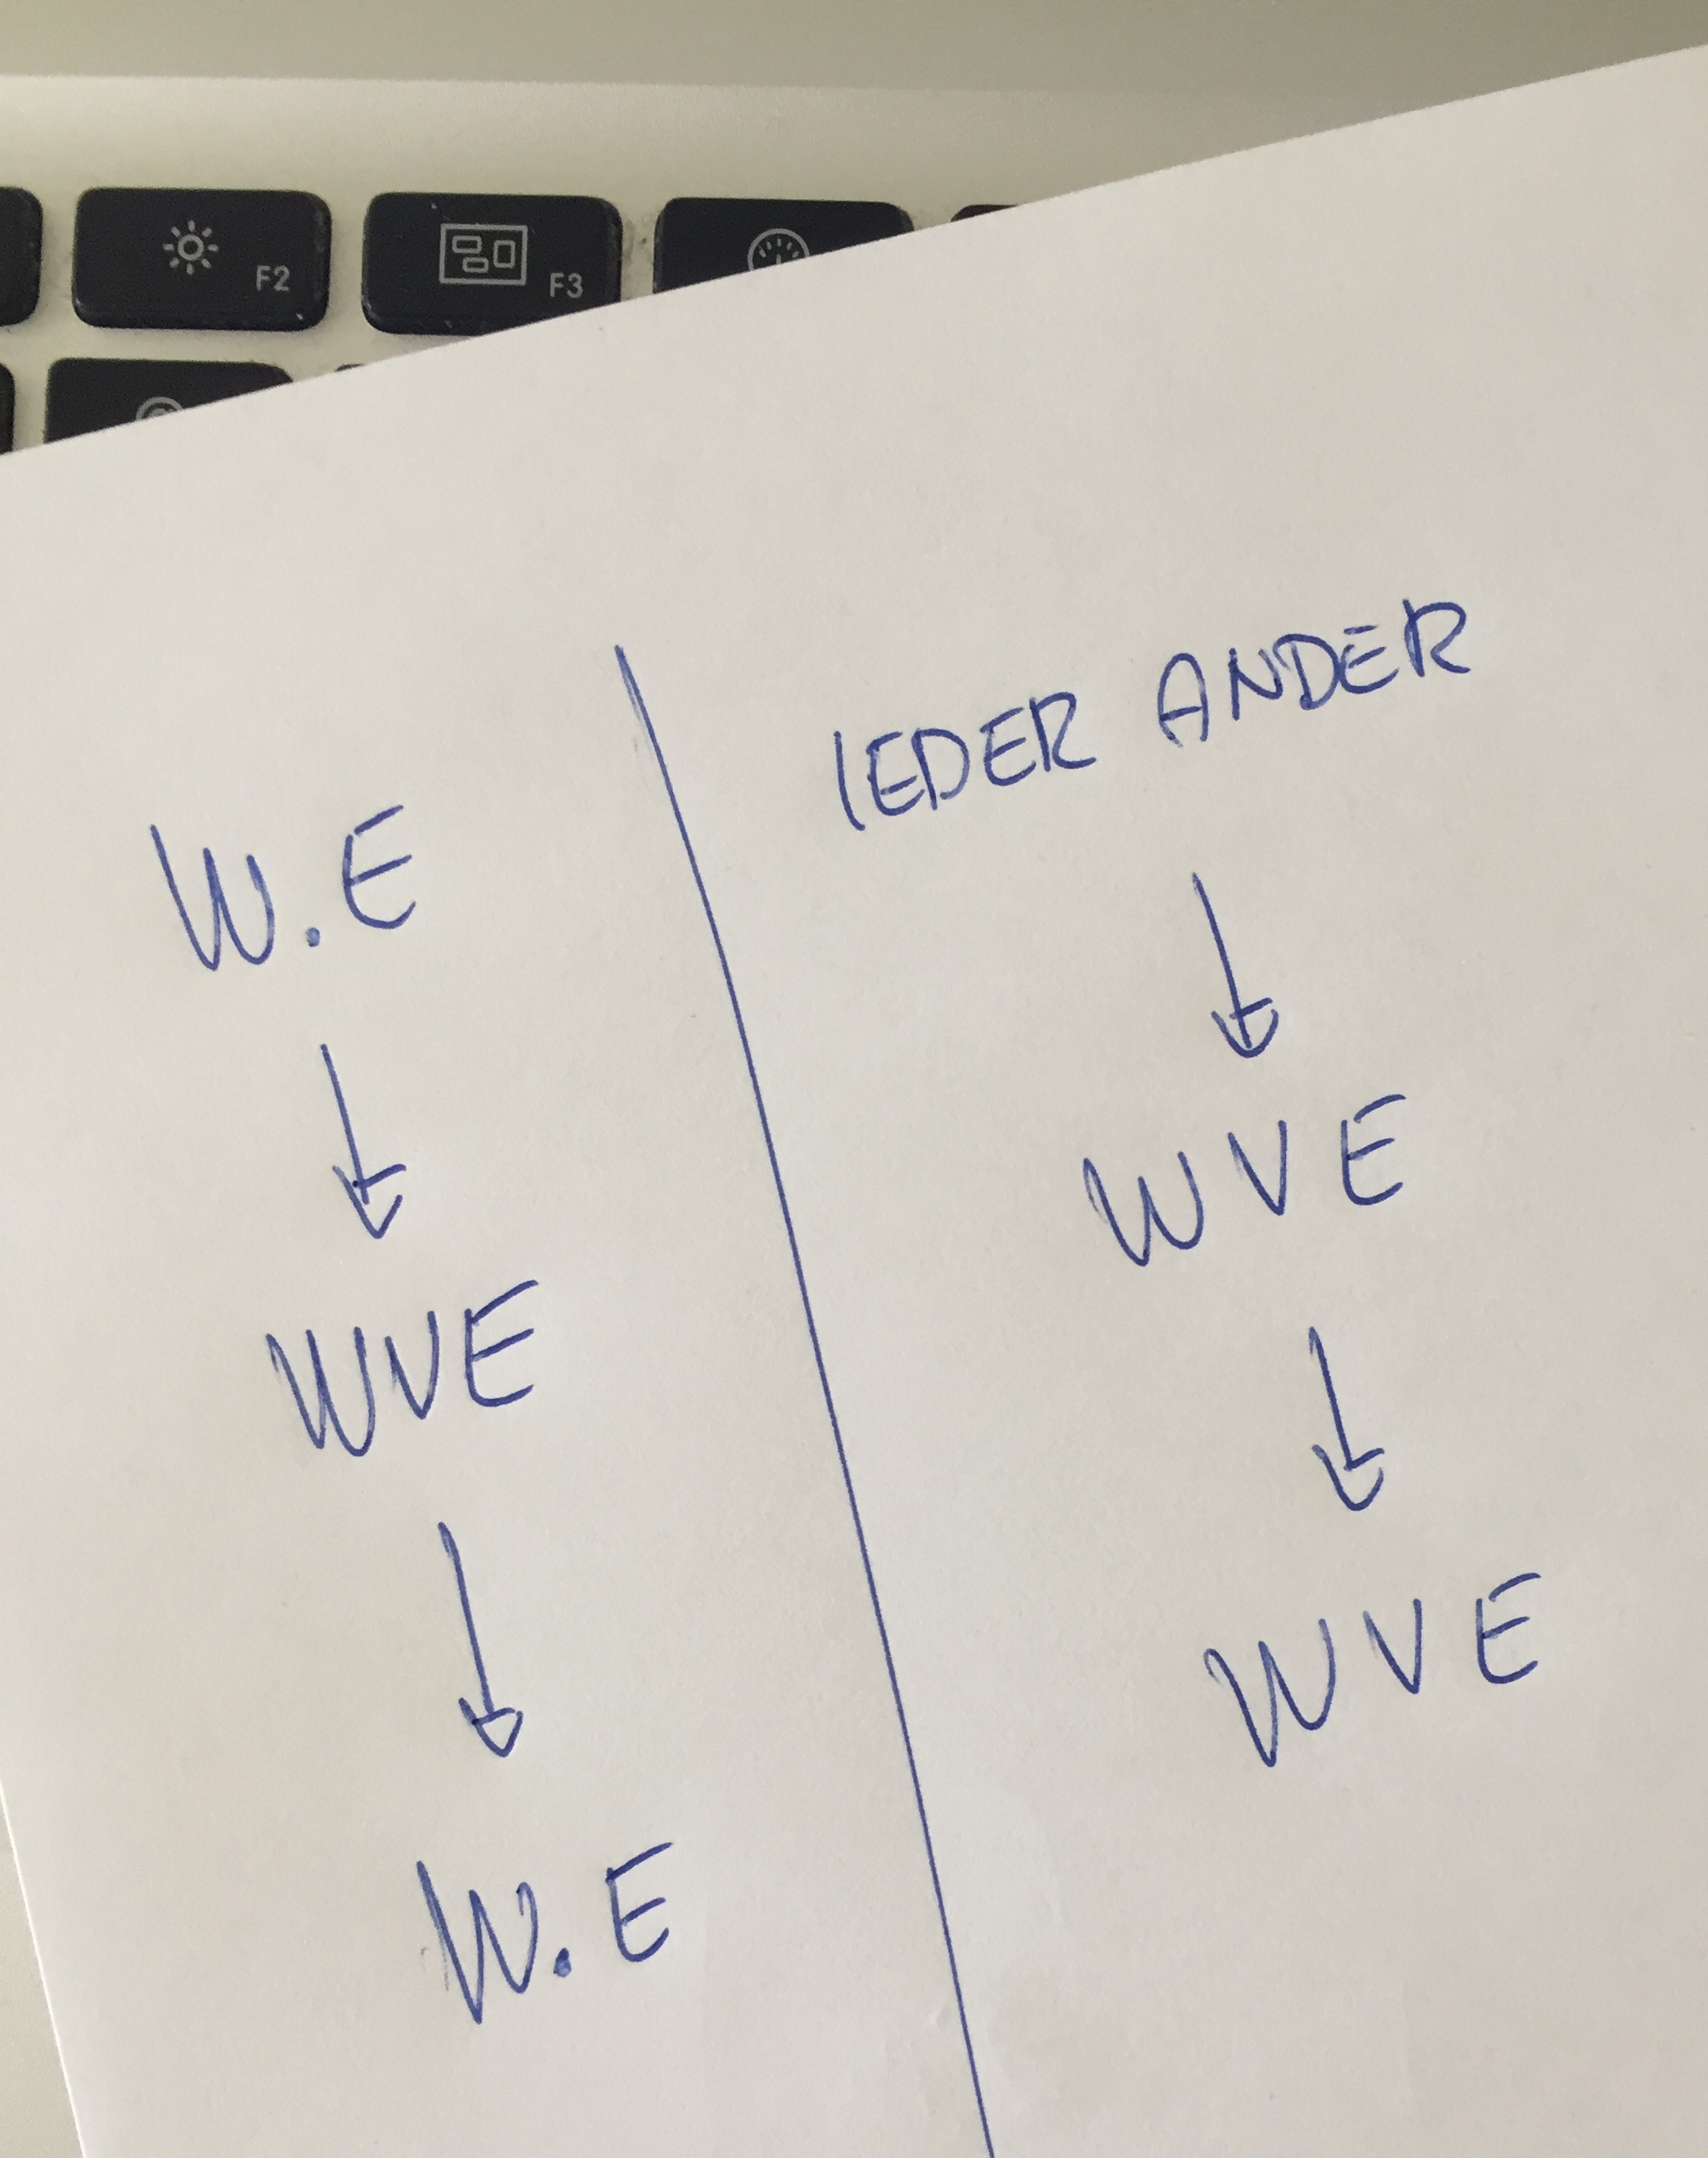 F2
F3
W.E
WVE
W.E
IEDER ANDER
WVE
WVE